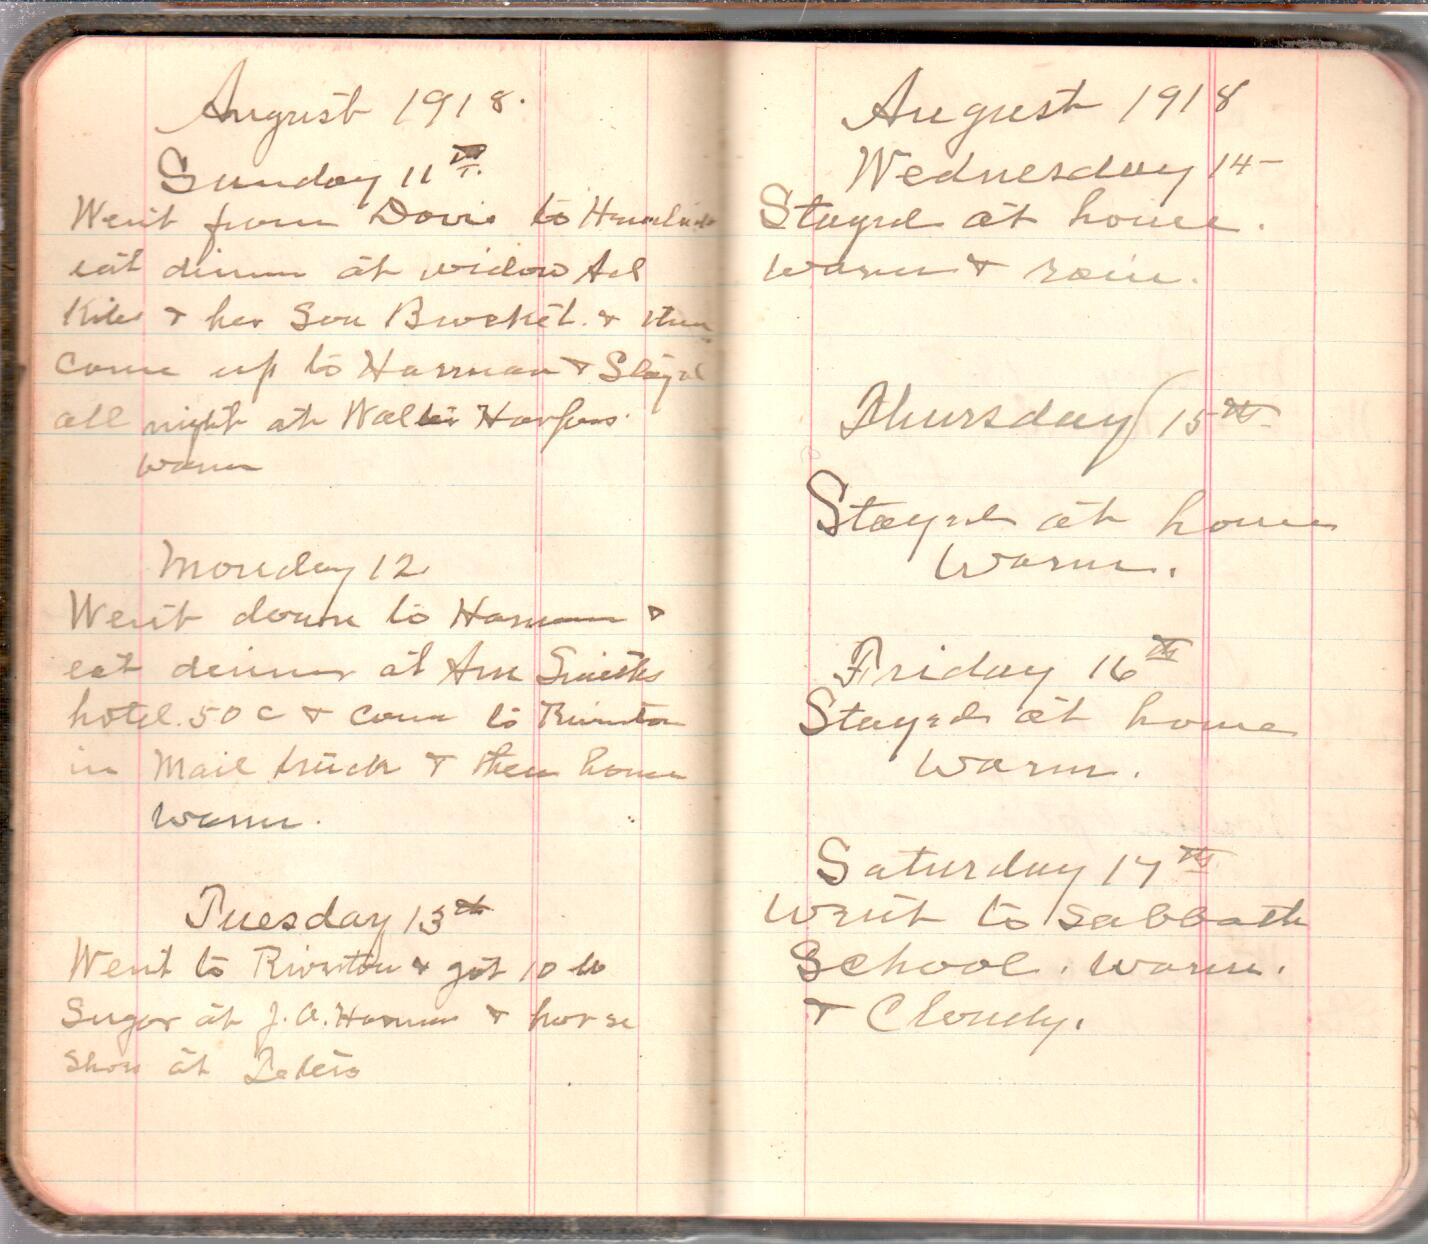 August 1918.
Sunday 11th.
Went from Davis to
eat dinner at widow
& her Son & then
came up to Harman & Stayed
all night at Walter Harpers.
warm
Monday 12
Went down to Harman &
eat dinner at
hotel. 50 c & come to Riverton
in Mail truck & then home
warm.
Tuesday 13th
Went to Riverton & got 10 lb
Sugar at J. A. Harman & horse
shoes at
August 1918
Wednesday 14-
Stayed at home.
warm & rain.
Thursday 15th
Stayed at home
Warm.
Friday 16th
Stayed at home
Warm.
Saturday 17th
Went to Sabbath
School. Warm.
& Cloudy.